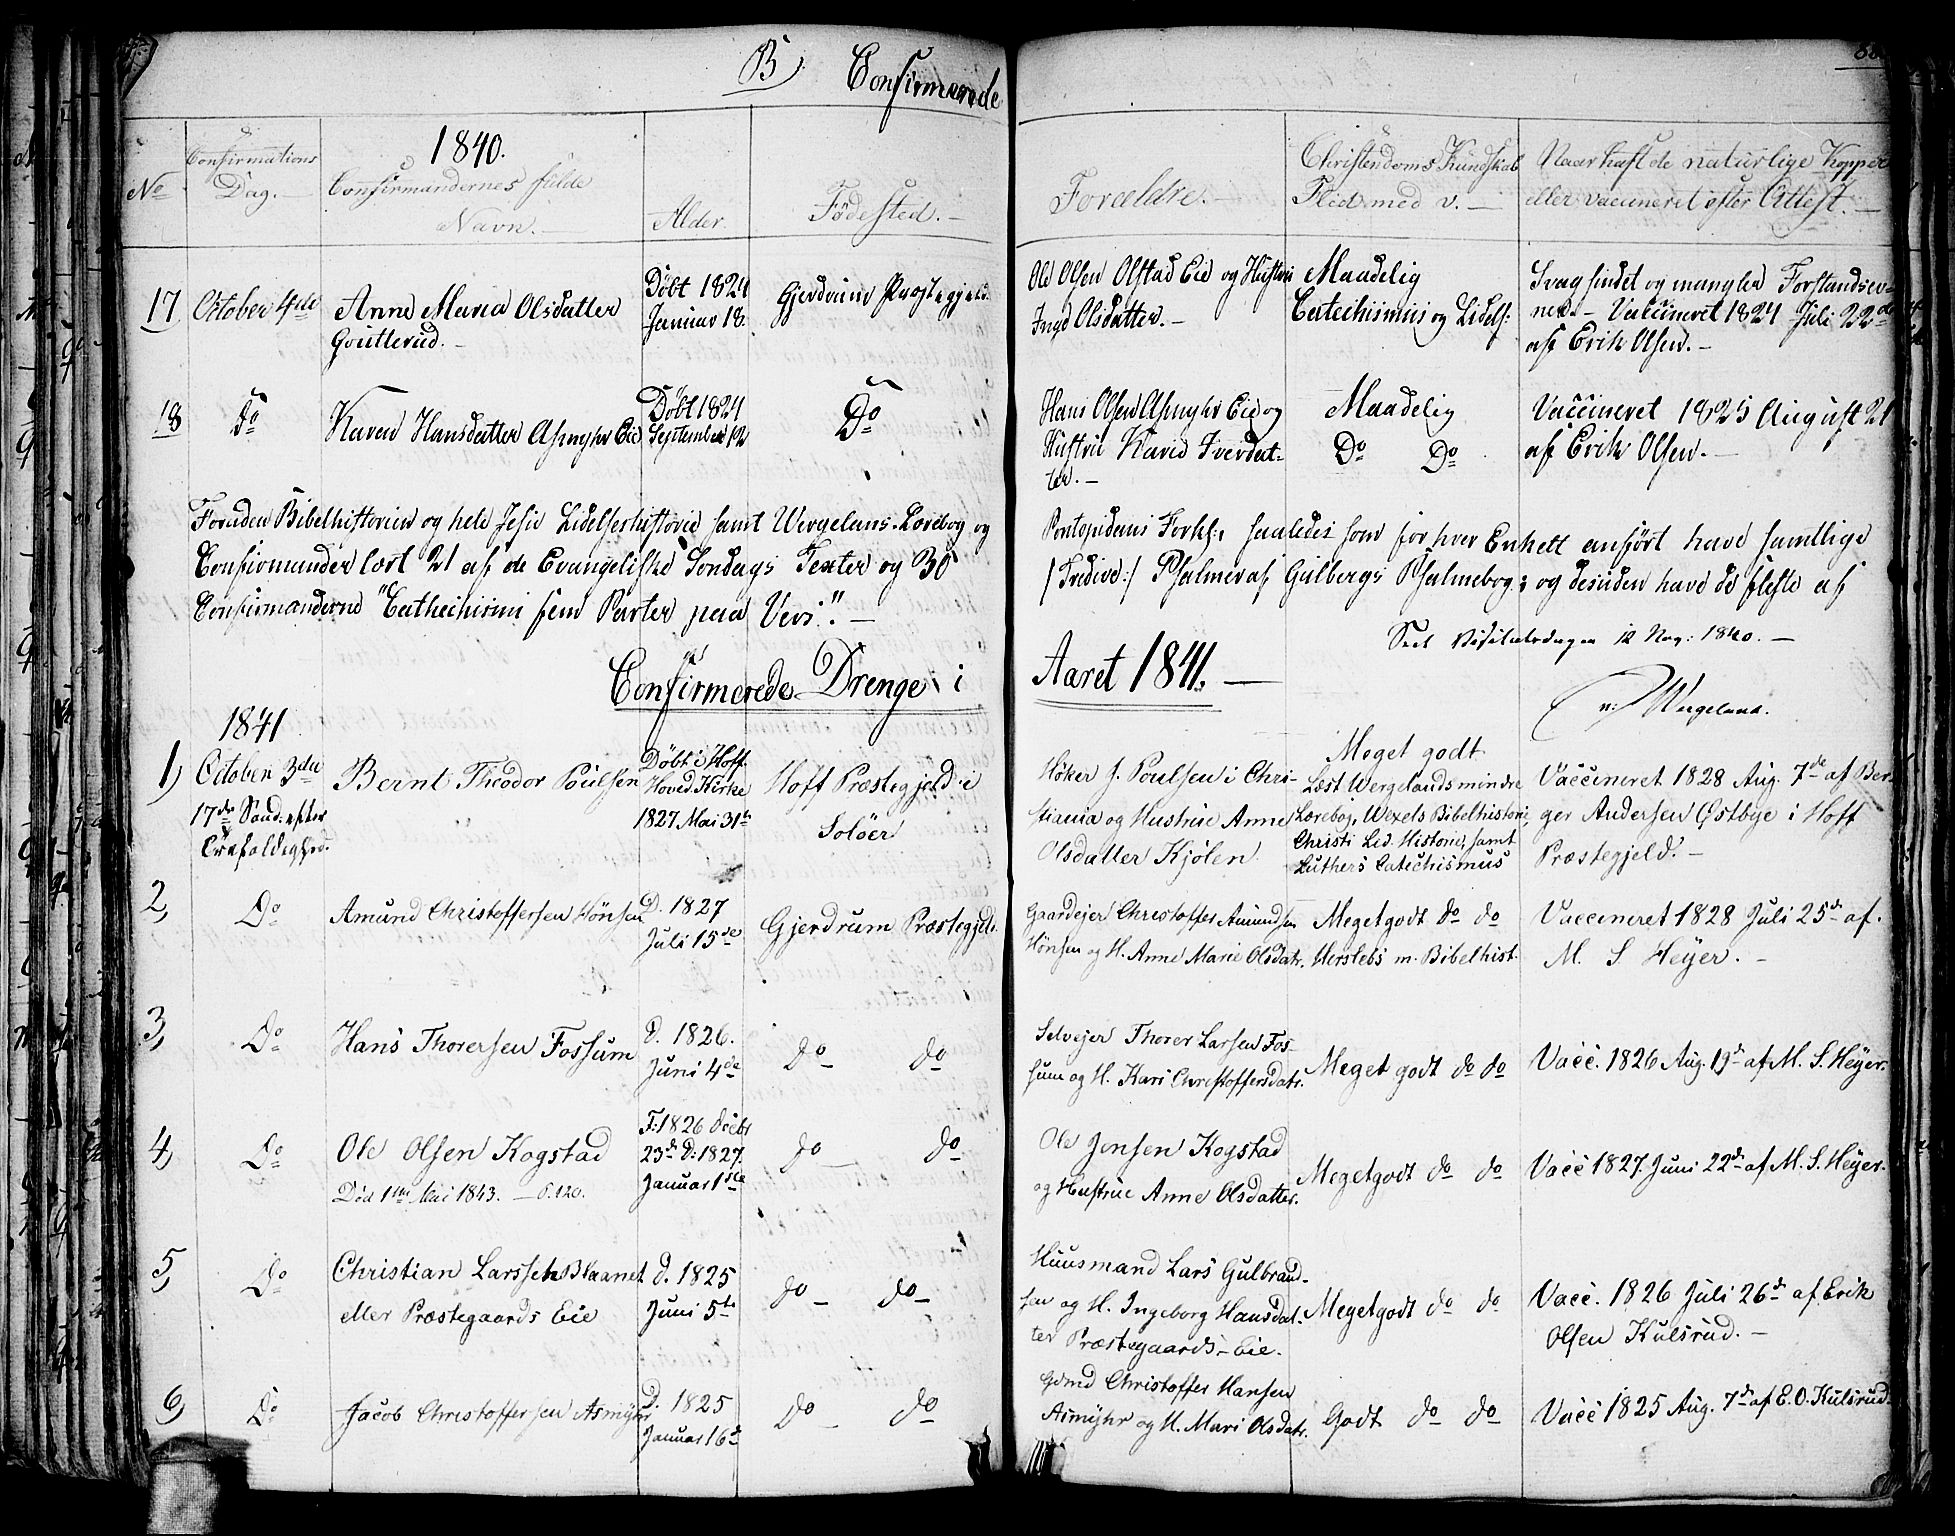 B) Confirmerede
1840.
No
Confirmations
Dag.
Confirmandernes fulde
Navn.
Alder.
Fødested.
Forældre.
Christendoms Kundskab
Flid med v.
Naar haft de naturlige Kopper
eller vaccineret efter Attest.
17 October 4de
Anne Maria Olsdatter
Goutterud.
Døbt 1824
Januar 18.
Gjerdrum Præstegjeld.
Ole Olsen Olstad Eie og Hustru
Inge Olsdatter.
Maadelig
Catechismus og Lidels:
Svagsindet og mangler Forstandsev-
ner. Vaccineret 1824 Juli 22de
af Erik Olsen.
18 Do
Karen Hansdatter Asmyhr Eie
Døbt 1824
September 12
Do
Hans Olsen Asmyhr Eie og
Hustrue Kari Iverdat-
ter.
Maadelig
Do Do
Vaccineret 1825 August 21
af Erik Olsen.
Foruden Bibelhistorien og hele Jesu Lidelseshistorie samt Wergelans Lærebog og Pontopidans Forkl:, saaledes som for hver Enkelt anført have samtlige
Confirmander lært 21 af de Evangeliske Søndags Texter og 30 /:Tredive:/ Psalmer af Gulbergs Psalmebog; og desuden have de fleste af
Confirmanderne "Cathechismi fem Parter paa Vers".
Seet Visitatsdagen 12 Nov: 1840.
n: Wergeland.
Confirmerede Drenge i Aaret 1841.
1841
1) October 3die
17de Sønd: efter
Trefoldighed.
Bernt Theodor Poulsen
Døbt i Hoff
Hoved Kirke
1827 Mai 31te
Hoff Præstegjeld i
Soløer
Høker J. Poulsen i Chri-
stiania og Hustrue Anne
Olsdatter Kjølen
Meget godt
Læst Wergelands mindre
Lærebog, Wexels Bibelhistorie
Christi Lid. Historie, samt
Luthers Catechismus
Vaccineret 1828 Aug. 7de af Ber-
ger Andersen Østbye i Hoff
Præstegjeld.
2) Do
Amund Christoffersen Hønsen
D. 1827
Juli 15de
Gjerdrum Præstegjeld.
Gaardejer Christoffer Amundsen
Hønsen og H. Anne Marie Olsdatr.
Megetgodt do do
Herslebs m. Bibelhist.
Vaccineret 1828 Juli 25de af.
M. S. Heyer.
3) Do
Hans Thorersen Fossum
D. 1826.
Juni 4de
do do
Selvejer Thorer Larsen Fos-
sum og H. Kari Christoffersdatr.
Meget godt do do
Vacc. 1826 Aug. 19de af M. S. Heyer.
4) Do
Ole Olsen Kogstad
Død 1ste Mai 1843. S. 120.
F: 1826 Decbr
23de D: 1827
Januar 1ste
do do
Ole Jensen Kogstad
og Hustrue Anne Olsdatter.
Megetgodt do do
Vacc 1827. Juni 22de af M. S. Heyer.
5) Do
Christian Larssen Blaanet
eller Præstegaards Eie
D. 1825
Juni 5te
do do
Huusmand Lars Gulbrand-
sen og H. Ingeborg Hansdat-
ter Præstegaards-Eie.
Megetgodt do do
Vacc. 1826 Juli 26de af Erik
Olsen Kulsrud.
6) Do
Jacob Christoffersen Asmyhr
D. 1825
Januar 16de
do do
Gdmd Christoffer Hansen
Asmyhr og H. Mari Olsdatr.
Godt do do
Vacc 1825 Aug. 7de af E. O. Kulsrud